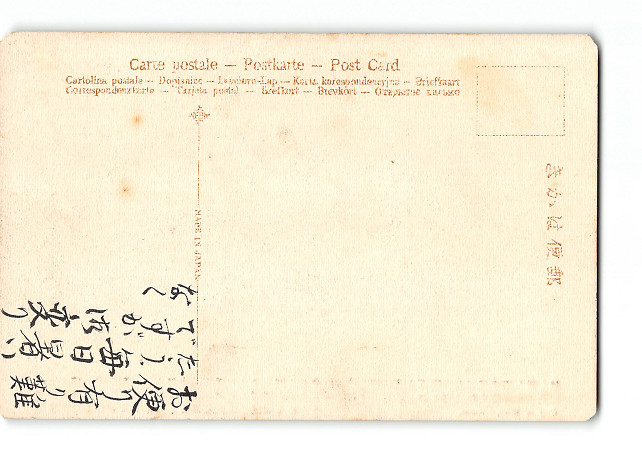 Carte postale — Postkarte — Post Card
Cartolina postale — Dopisnice — Levelezo-Lap — Korta korespondencyjna — Briefkaart
Correspondenzkarte — Tarjeta postal — Brefkort — Brevkort — Открытое письмо
郵便はがき
MADE IN JAPAN
お便り有り難
たう毎日暑い
ですが御変り
なく